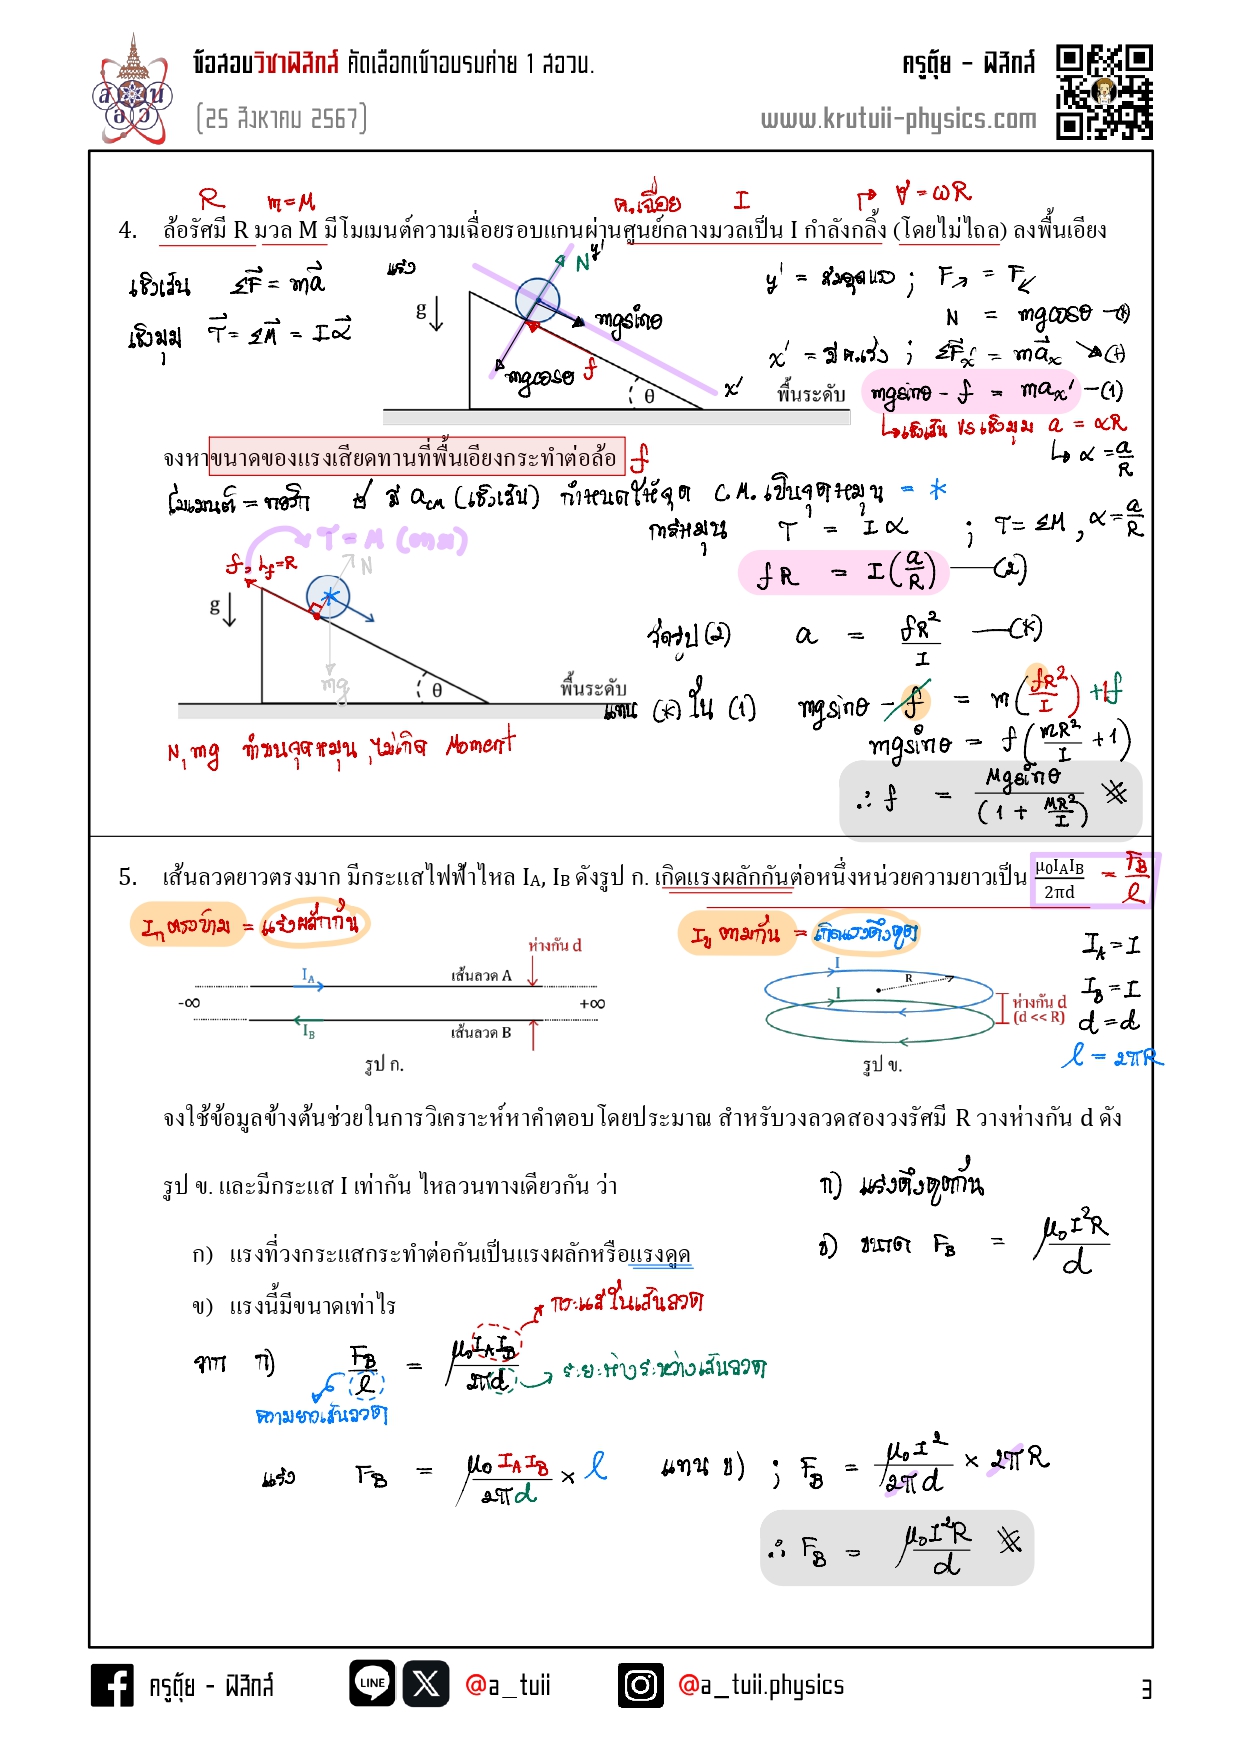 ข้อสอบวิชาฟิสิกส์ คัดเลือกเข้าอบรมค่าย 1 สอวน.
ครูตุ้ย - ฟิสิกส์
(25 สิงหาคม 2567)
www.krutuii-physics.com
R m=M ค.เฉื่อย I ↱ v = ωR
4. ล้อรัศมี R มวล M มีโมเมนต์ความเฉื่อยรอบแกนผ่านศูนย์กลางมวลเป็น I กำลังกลิ้ง (โดยไม่ไถล) ลงพื้นเอียง
เชิงเส้น ΣF⃗ = ma⃗
เชิงมุม τ⃗ = ΣM⃗ = Iα⃗
แรง
g
N y'
mgsinθ
mgcosθ f
θ
x'
พื้นระดับ
y' = สมดุลแรง ; F↗ = F↙
N = mgcosθ —(*)
x' = มีค.เร่ง ; ΣF⃗x' = ma⃗x ↘(+)
mgsinθ - f = max' —(1)
↳เชิงเส้น vs เชิงมุม a = αR
↳ α = a/R
จงหาขนาดของแรงเสียดทานที่พื้นเอียงกระทำต่อล้อ f
โมเมนต์ = ทอร์ก มี acm (เชิงเส้น) กำหนดให้จุด C.M. เป็นจุดหมุน = *
การหมุน τ = Iα ; τ = ΣM , α = a/R
τ = M (ตาม)
f, Lf=R
N
g
fR = I(a/R) —(2)
จัดรูป (2) a = fR²/I —(*)
mg
θ
พื้นระดับ
แทน (*) ใน (1) mgsinθ - f = m(fR²/I) + f
N, mg ทำชนจุดหมุน, ไม่เกิด Moment
mgsinθ = f(mR²/I + 1)
∴ f = Mgsinθ/(1 + MR²/I) ※
5. เส้นลวดยาวตรงมาก มีกระแสไฟฟ้าไหล IA, IB ดังรูป ก. เกิดแรงผลักกันต่อหนึ่งหน่วยความยาวเป็น μ0IAIB/2πd = FB/l
Iก ตรงข้าม = แรงผลักกัน
Iข ตามกัน = เกิดแรงดึงดูด
IA = I
IB = I
d = d
l = 2πR
ห่างกัน d
IA เส้นลวด A
-∞ +∞
IB เส้นลวด B
รูป ก.
I
R
I
ห่างกัน d
(d << R)
รูป ข.
จงใช้ข้อมูลข้างต้นช่วยในการวิเคราะห์หาคำตอบโดยประมาณ สำหรับวงลวดสองวงรัศมี R วางห่างกัน d ดัง
รูป ข. และมีกระแส I เท่ากัน ไหลวนทางเดียวกัน ว่า
ก) แรงดึงดูดกัน
ก) แรงที่วงกระแสกระทำต่อกันเป็นแรงผลักหรือแรงดูด
ข) ขนาด FB = μ0I²R/d
ข) แรงนี้มีขนาดเท่าไร
กระแสในเส้นลวด
จาก ก) FB/l = μ0IAIB/2πd
ระยะห่างระหว่างเส้นลวด
ความยาวเส้นลวด
แรง FB = μ0IAIB/2πd × l แทน ข) ; FB = μ0I²/2πd × 2πR
∴ FB = μ0I²R/d ※
ครูตุ้ย - ฟิสิกส์
LINE
X
@a_tuii
@a_tuii.physics
3